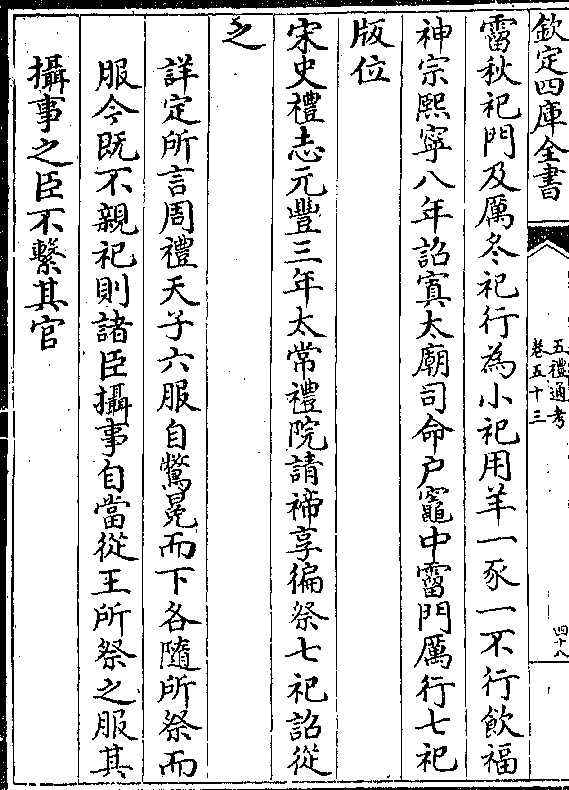 欽定四庫全書
五禮通考
卷五十三
四十八
霤秋祀門及厲冬祀行為小祀用羊一豕一不行飲福
神宗熙寧八年詔寘太廟司命户竈中霤門厲行七祀
版位
宋史禮志元豐三年太常禮院請禘享徧祭七祀詔從
之
詳定所言周禮天子六服自鷩冕而下各隨所祭而
服今既不親祀則諸臣攝事自當從王所祭之服其
攝事之臣不繫其官